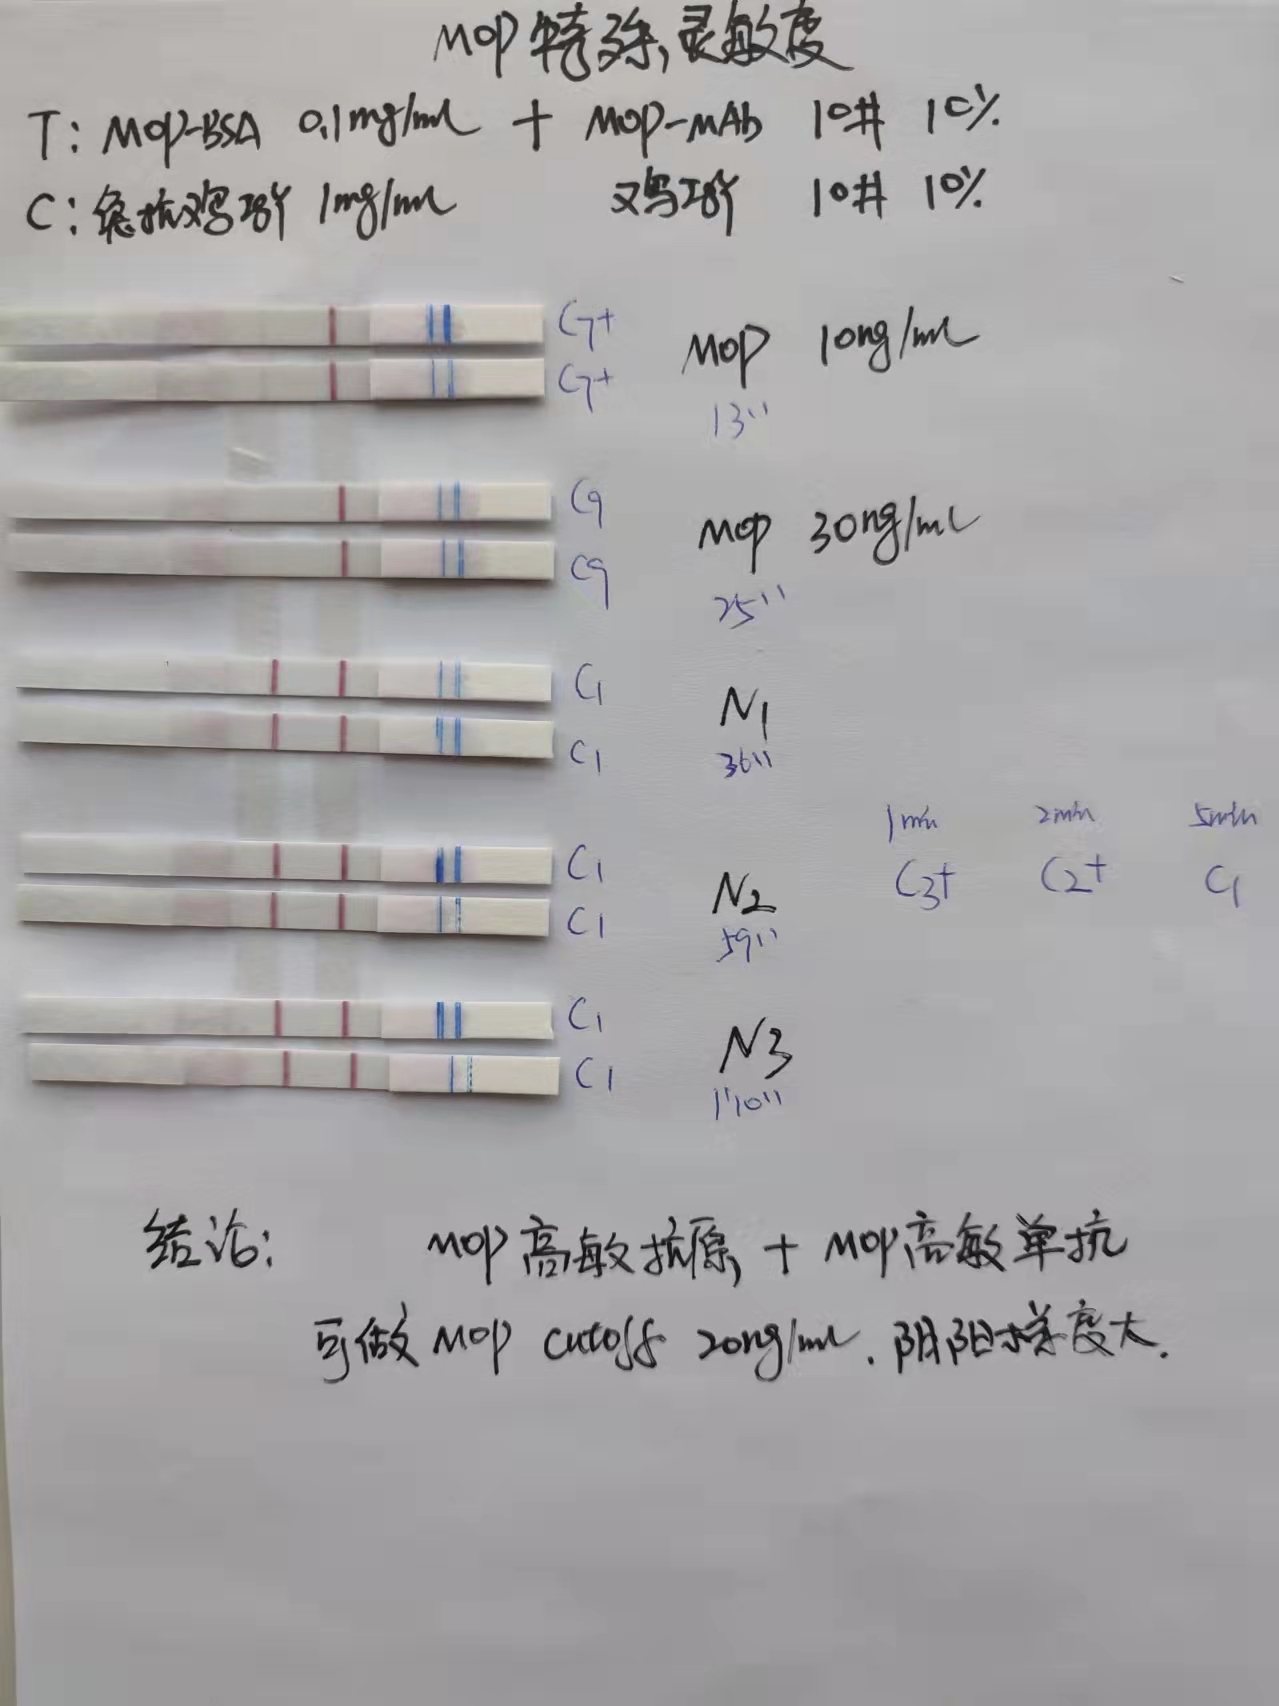 MOP 特殊，灵敏度
T: MOP-BSA 0.1mg/ml + MOP-mAb 10# 10%
C: 兔抗鸡IgY 1mg/ml 鸡IgY 10# 10%
C7+
C7+
MOP 10ng/ml
13''
C9
C9
MOP 30ng/ml
25''
C1
C1
N1
36''
1min 2min 5min
C1
C1
N2
59''
C3+ C2+ C1
C1
C1
N3
1'10''
结论: MOP高敏抗原 + MOP高敏单抗
可做 MOP cutoff 20ng/ml. 阴阳梯度大.